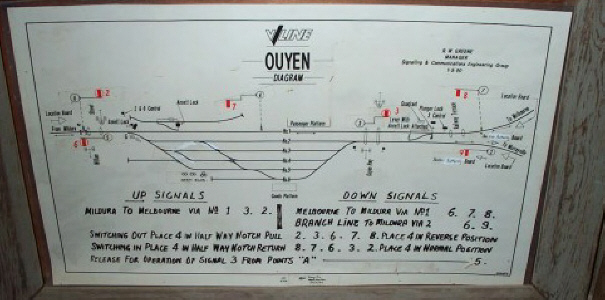 V/LINE
OUYEN
DIAGRAM
G W GREENE
MANAGER
Signalling & Communications Engineering Group
Location Board
From Mildura
2
Annett Lock
1 & 4 Control
Annett Lock
7
Passenger Platform
No.1
No.2
No.3
No.4
No.5
No.6
Goods Platform
3
Lever With
Annett Lock Attached
Quadrant
Plunger Lock
3 Control
8
Location Board
To Melbourne
6
9
Board
Location
Board
UP SIGNALS
MILDURA TO MELBOURNE VIA Nº 1 3. 2.
DOWN SIGNALS
MELBOURNE TO MILDURA VIA Nº1 6. 7. 8.
BRANCH LINE TO MILDURA VIA 2 6. 9.
SWITCHING OUT PLACE 4 IN HALF WAY NOTCH PULL 2. 3. 6. 7. 8. PLACE 4 IN REVERSE POSITION
SWITCHING IN PLACE 4 IN HALF WAY NOTCH RETURN 8. 7. 6. 3. 2. PLACE 4 IN NORMAL POSITION
RELEASE FOR OPERATION OF SIGNAL 3 FROM POINTS "A" 5.